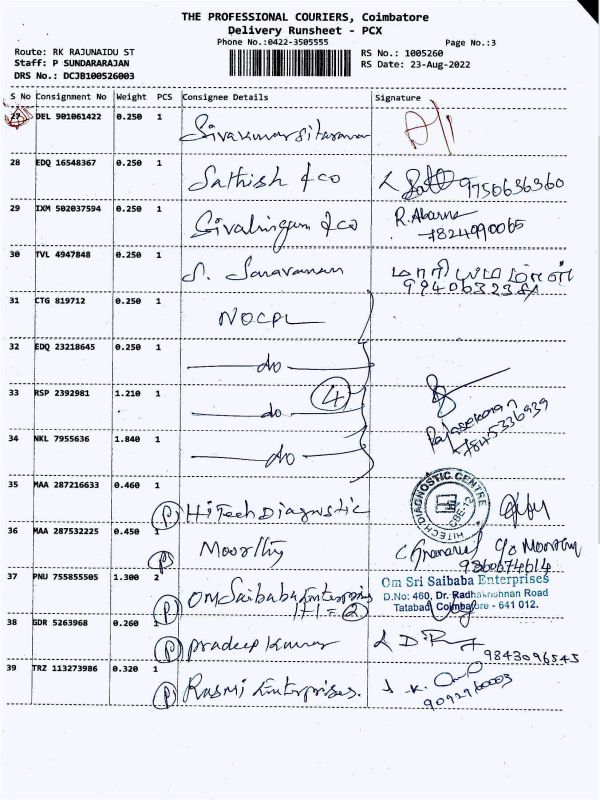 THE PROFESSIONAL COURIERS, Coimbatore
Delivery Runsheet - PCX
Phone No.:0422-3505555
Page No.:3
Route: RK RAJUNAIDU ST
Staff: P SUNDARARAJAN
DRS No.: DCJB100526003
RS No.: 1005260
RS Date: 23-Aug-2022
S No Consignment No Weight PCS Consignee Details Signature
27 DEL 901061422 0.250 1 Sivakumar Sitaraman
28 EDQ 16548367 0.250 1 Sathish & co 9750636360
29 IXM 502037594 0.250 1 Sivalingam & co R. Abarna
7824090065
30 TVL 4947848 0.250 1 S. Saravanan
31 CTG 819712 0.250 1 NOCPL
32 EDQ 23218645 0.250 1 do
33 RSP 2392981 1.210 1 do 4
Rajasekaran
7845336939
34 NKL 7955636 1.840 1 do
35 MAA 287216633 0.460 1 P HiTech Diagnostic
HITECH DIAGNOSTIC CENTRE
CBE-12
36 MAA 287532225 0.450 1 P Moorthy
9360674614
37 PNU 755855505 1.300 2 P Om Saibaba Enterprises
1+1=2
Om Sri Saibaba Enterprises
D.No: 460, Dr. Radhakrishnan Road
Tatabad, Coimbatore - 641 012.
38 GDR 5263968 0.260 1 P Pradeep Kumar
9843096545
39 TRZ 113273986 0.320 1 P Rasmi Enterprises.
9092960003